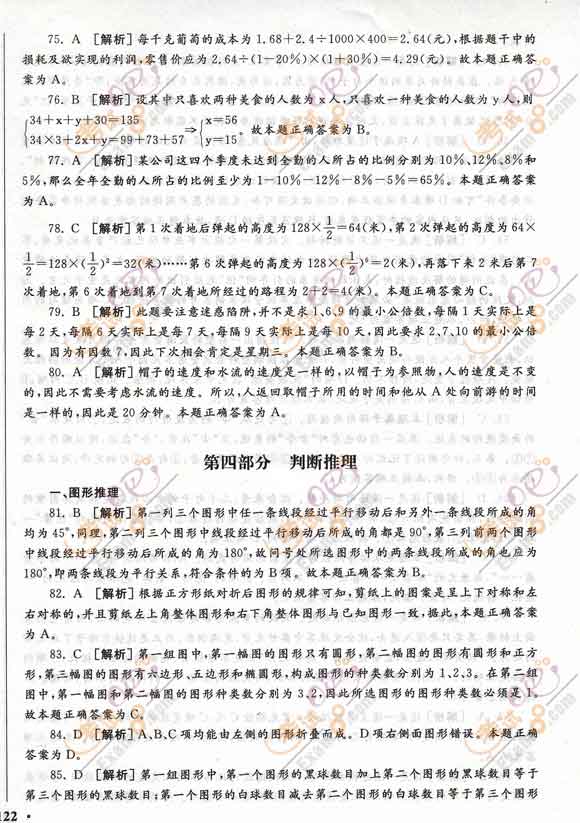 75. A [解析] 每千克葡萄的成本为 1.68+2.4÷1000×400=2.64(元),根据题干中的
损耗及欲实现的利润,零售价应为 2.64÷(1-20%)×(1+30%)=4.29(元)。故本题正确答
案为 A。
76. B [解析] 设其中只喜欢两种美食的人数为 x 人,只喜欢一种美食的人数为 y 人,则
{34+x+y+30=135
34×3+2x+y=99+73+57 ⇒ {x=56
y=15。故本题正确答案为 B。
77. A [解析] 某公司这四个季度未达到全勤的人所占的比例分别为 10%、12%、8%和
5%,那么全年全勤的人所占的比例至少为 1-10%-12%-8%-5%=65%。本题正确答案
为 A。
78. C [解析] 第 1 次着地后弹起的高度为 128×1/2=64(米),第 2 次弹起的高度为 64×
1/2=128×(1/2)²=32(米)……第 6 次弹起的高度为 128×(1/2)⁶=2(米),再落下来 2 米后第 7
次着地,第 6 次着地到第 7 次着地所经过的路程为 2+2=4(米)。本题正确答案为 C。
79. B [解析] 此题要注意迷惑陷阱,并不是求 1、6、9 的最小公倍数,每隔 1 天实际上是
每 2 天,每隔 6 天实际上是每 7 天,每隔 9 天实际上是每 10 天,因此要求 2、7、10 的最小公倍
数。因为有因数 7,因此下次相会肯定是星期三。本题正确答案为 B。
80. A [解析] 帽子的速度和水流的速度是一样的,以帽子为参照物,人的速度是不变
的,因此不需要考虑水流的速度。所以,人返回取帽子所用的时间和他从 A 处向前游的时间
是一样的,因此是 20 分钟。本题正确答案为 A。
第四部分 判断推理
一、图形推理
81. B [解析] 第一列三个图形中任一条线段经过平行移动后和另外一条线段所成的角
均为 45°,同理,第二列三个图形中线段经过平行移动后所成的角都是 90°,第三列前两个图形
中线段经过平行移动后所成的角为 180°,故问号处所选图形中的两条线段所成的角也应为
180°,即两条线段为平行关系,符合条件的为 B 项。故本题正确答案为 B。
82. A [解析] 根据正方形纸对折后图形的规律可知,剪纸上的图案是呈上下对称和左
右对称的,并且剪纸左上角整体图形和右下角整体图形与已知图形一致,据此,本题正确答案
为 A。
83. C [解析] 第一组图中,第一幅图的图形只有圆形,第二幅图的图形有圆形和正方
形,第三幅图的图形有六边形、五边形和椭圆形,构成图形的种类数分别为 1、2、3。在第二组
图中,第一幅图和第二幅图的图形种类数分别为 3、2,因此所选图形的图形种类数必须是 1。
故本题正确答案为 C。
84. D [解析] A、B、C 项均能由左侧的图形折叠而成。D 项右侧面图形错误。本题正确
答案为 D。
85. D [解析] 第一组图形中,第一个图形的黑球数目加上第二个图形的黑球数目等于
第三个图形的黑球数目;第一个图形的白球数目减去第二个图形的白球数目等于第三个图形
122 ·
考试吧
Exam8.com